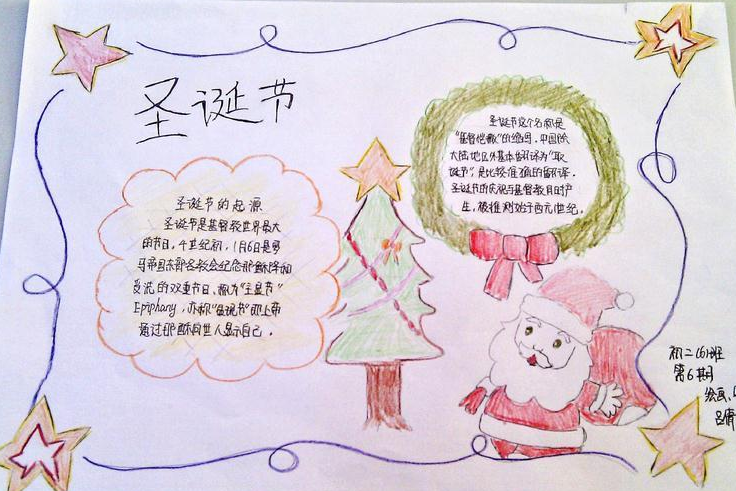 圣诞节
圣诞节的起源
圣诞节是基督教世界最大
的节日。4世纪初，1月6日是罗
马帝国东部各教会纪念耶稣降和
受洗的双重节日、称为"主显节"
Epiphany，亦称"显现节"即上帝
通过耶稣向世人显示自己。
圣诞节这个名称是
"基督弥撒"的缩写，中国除
大陆地区外基本翻译为"耶
诞节"，是比较准确的翻译。
圣诞节的庆祝与基督教同时产
生，被推测始于西元1世纪。
初二(6)班
第6期
绘画、